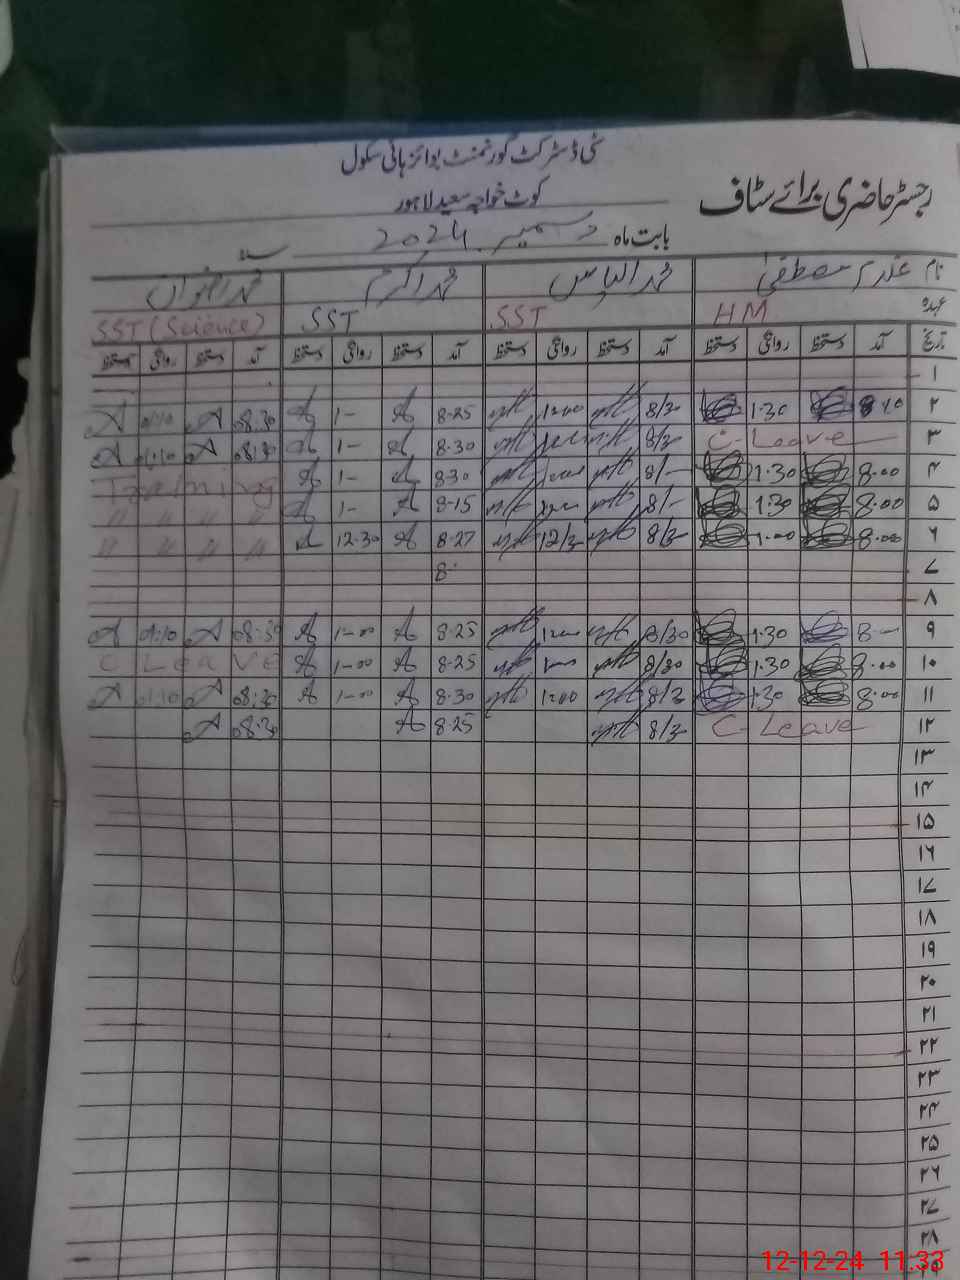 سٹی ڈسٹرکٹ گورنمنٹ بوائز ہائی سکول
رجسٹر حاضری برائے سٹاف
کوٹ خواجہ سعید لاہور
بابت ماہ دسمبر 2024 سنہ
نام غلام مصطفیٰ محمد الیاس محمد اکرم محمد رضوان
عہدہ HM SST SST SST (Science)
تاریخ آمد دستخط روانگی دستخط آمد دستخط روانگی دستخط آمد دستخط روانگی دستخط آمد دستخط روانگی دستخط
۱
۲ 1.30 8/30 1200 8-25 1- 08:30 01:10
۳ C-Leave 8/3 8-30 1- 08:30 01:10
۴ 8.00 1.30 8/- 830 1- Training
۵ 8.00 1:30 8/- 8-15 1- " " " "
۶ 8.00 1.00 8/3 12/3 8-27 12-30 " " " "
۷ 8.
۸
۹ 8- 1.30 8/30 8-25 1-00 08:30 01:10
۱۰ 8.00 1.30 8/30 8-25 1-00 C Leave
۱۱ 8.00 1.30 8/3 1200 8-30 1-00 08:30 01:10
۱۲ C-Leave 8/3 8-25 08:30
۱۳
۱۴
۱۵
۱۶
۱۷
۱۸
۱۹
۲۰
۲۱
۲۲
۲۳
۲۴
۲۵
۲۶
۲۷
۲۸
12-12-24 11:33